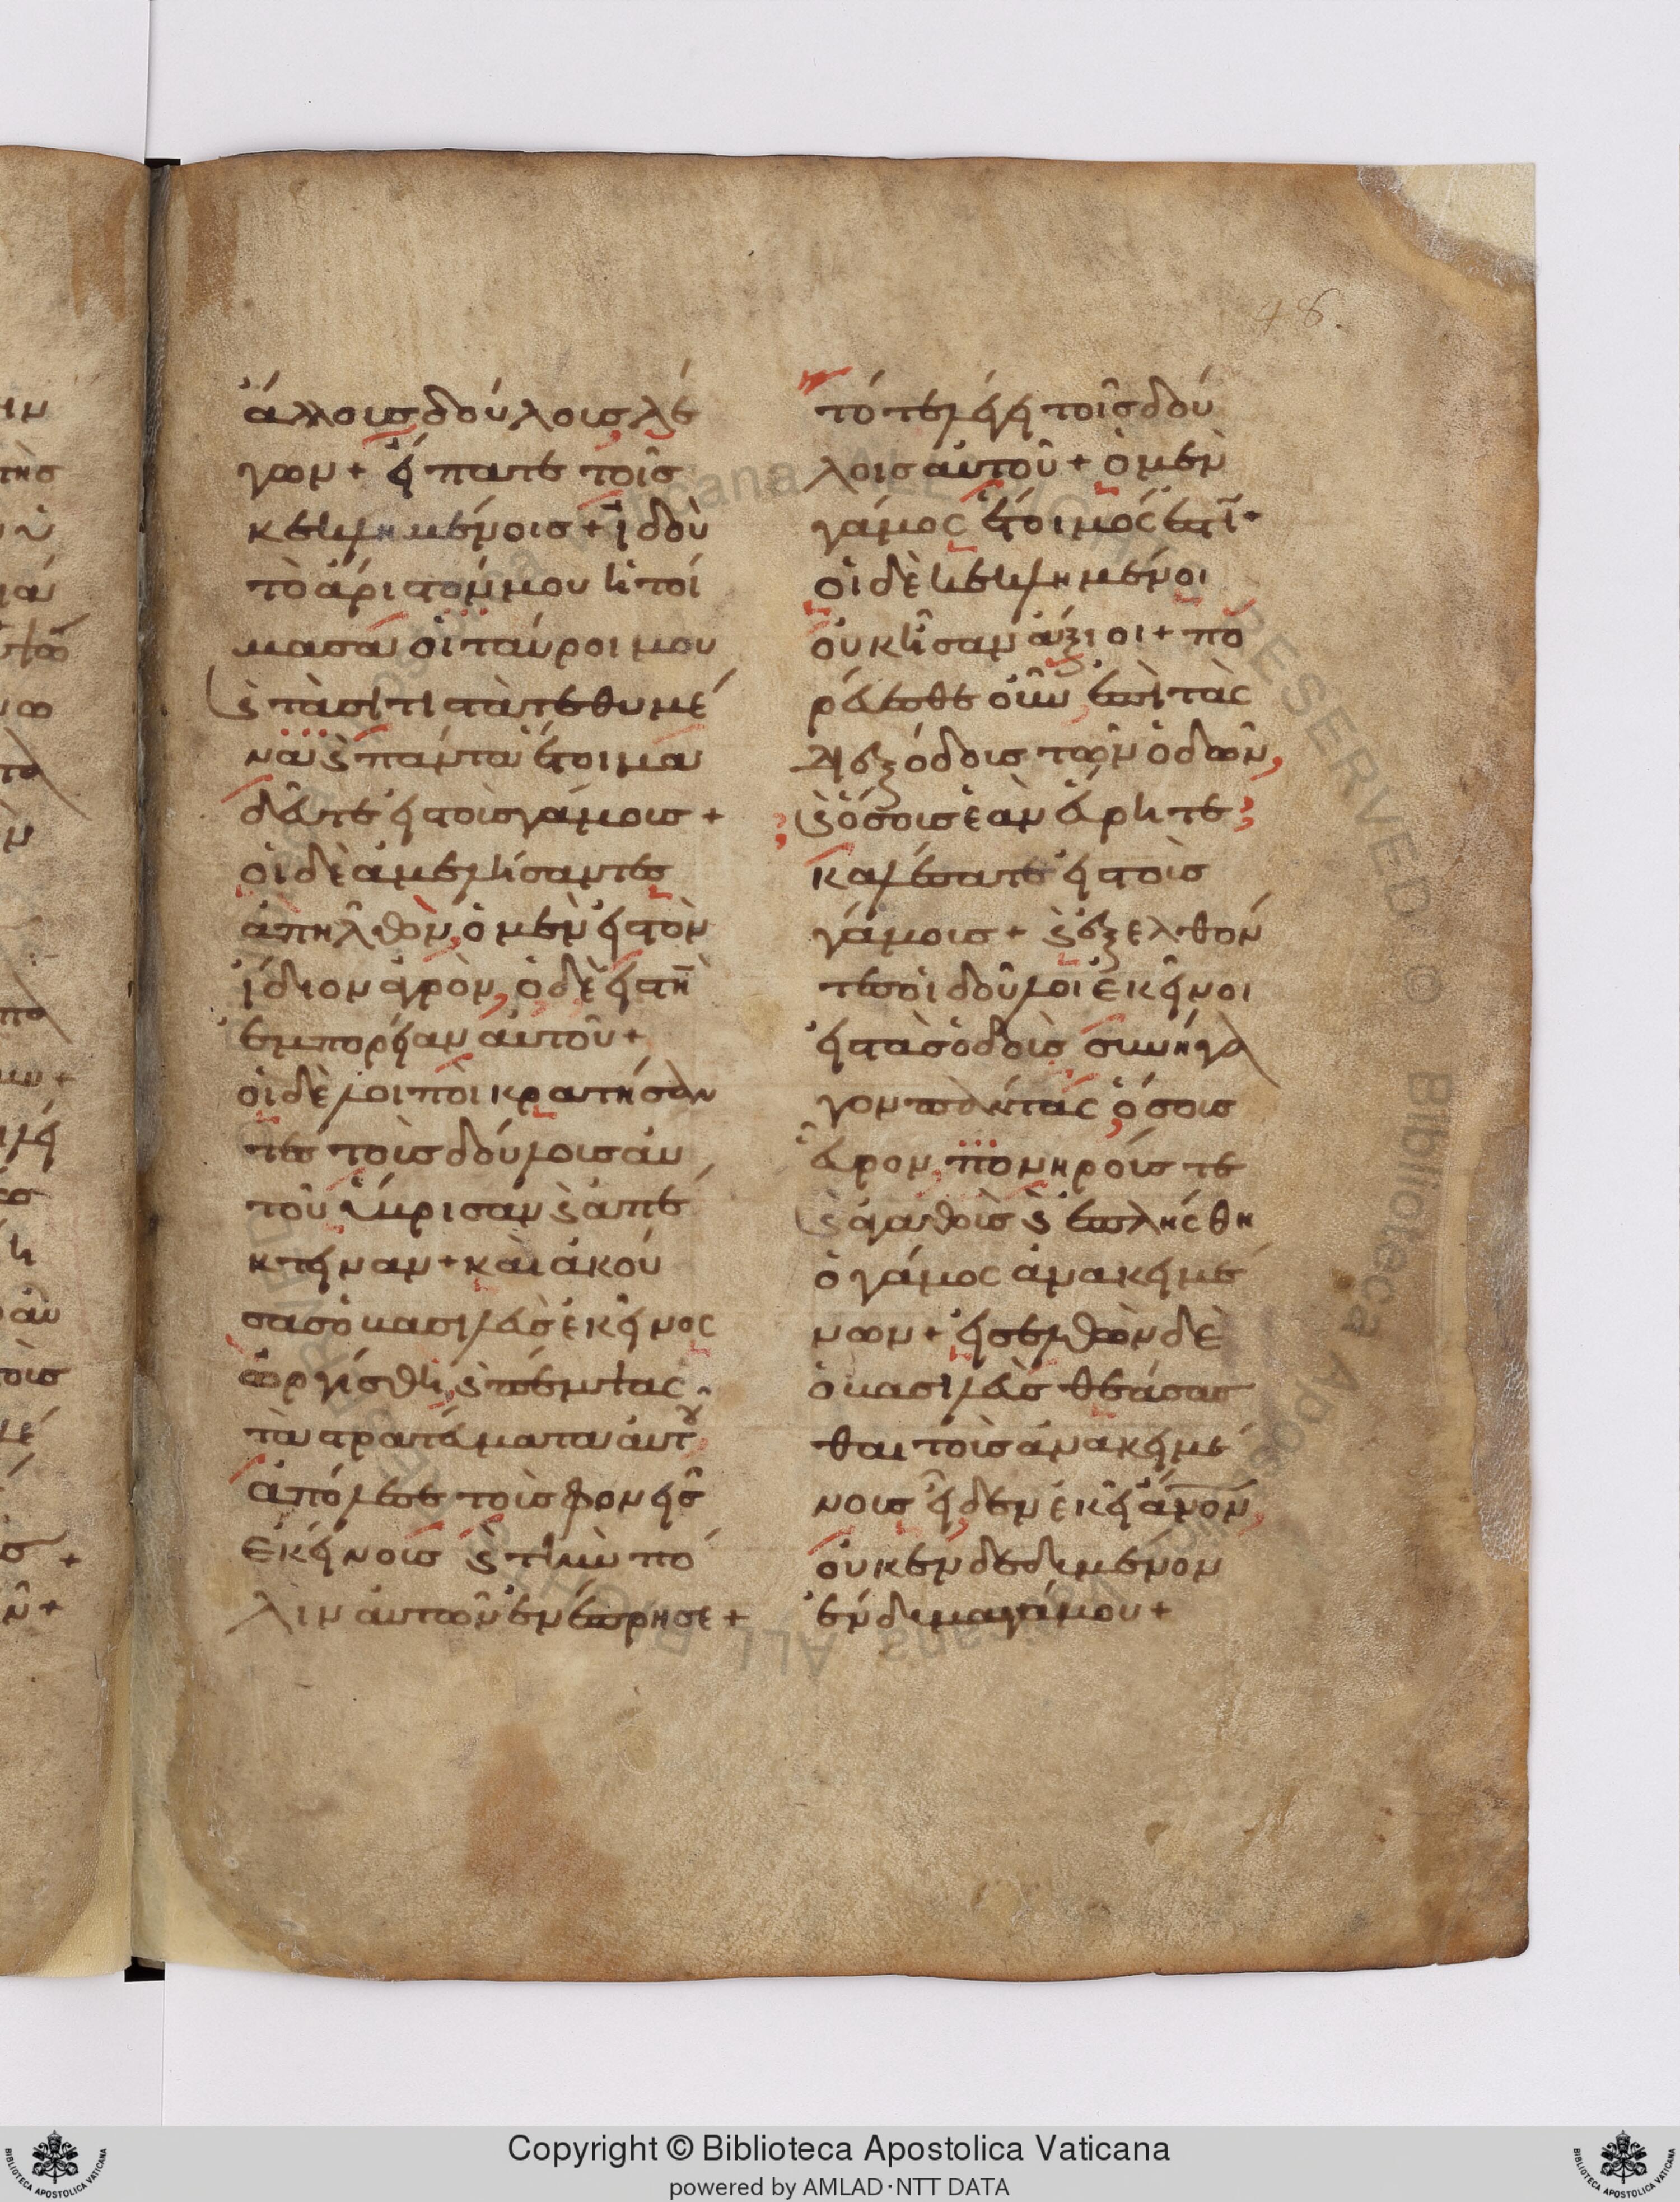 48.
ἄλλοις δούλοις λέ
γων + εἴπατε τοῖς
κεκλημένοις + ἰδοὺ
τὸ ἄριστόν μου ητοί
μασα οἱ ταύροι μου
ϛ τὰ σιτιστὰ τεθυμέ
να ϛ πάντα έτοιμα
δεῦτε εἰς τοὺς γάμους +
οἱ δὲ ἀμελήσαντες
ἀπῆλθον, ὁ μὲν εἰς τὸν
ἴδιον ἀγρὸν, ὁ δὲ εἰς τὴ
ἐμπορείαν αὐτοῦ +
οἱ δὲ λοιποὶ κρατήσαν
τες τοὺς δούλους αυ
τοῦ ὕβρισαν ϛ ἀπέ
κτειναν + καὶ ἀκού
σας ὁ βασιλεὺς ἐκεῖνος
ὠργίσθη, ϛ πέμψας
τὰ στρατεύματα αυτου
ἀπόλεσε τοὺς φονεῖς
ἐκείνους ϛ τὴν πό
λιν αὐτῶν ἐνέπρησε +
τότε λέγει τοῖς δού
λοις αὐτοῦ + ὁ μὲν
γάμος έτοιμός ἐστὶ·
οἱ δὲ κεκλημένοι
οὐκ ῆσαν ἄξιοι + πο
ρεύεσθε οὖν ἐπὶ τὰς
διεξόδους τῶν ὁδῶν,
ϛ ὅσους ἐὰν εὕρητε,
καλέσατε εἰς τοὺς
γάμους + ϛ ἐξελθόν
τες οἱ δοῦλοι ἐκεῖνοι
εἰς τὰς ὁδοὺς συνήγα
γον πάντας, ὅσους
εὗρον, πονηρούς τε
ϛ ἀγαθοὺς ϛ ἐπλήσθη
ὁ γάμος ἀνακειμέ
νων + εἰσελθὼν δὲ
ὁ βασιλεὺς θεάσασ
θαι τοὺς ἀνακειμέ
νους εἶδεν ἐκεῖ ἄνον,
οὐκ ενδεδυμένον
ἔνδυμα γάμου +
Copyright © Biblioteca Apostolica Vaticana
powered by AMLAD·NTT DATA